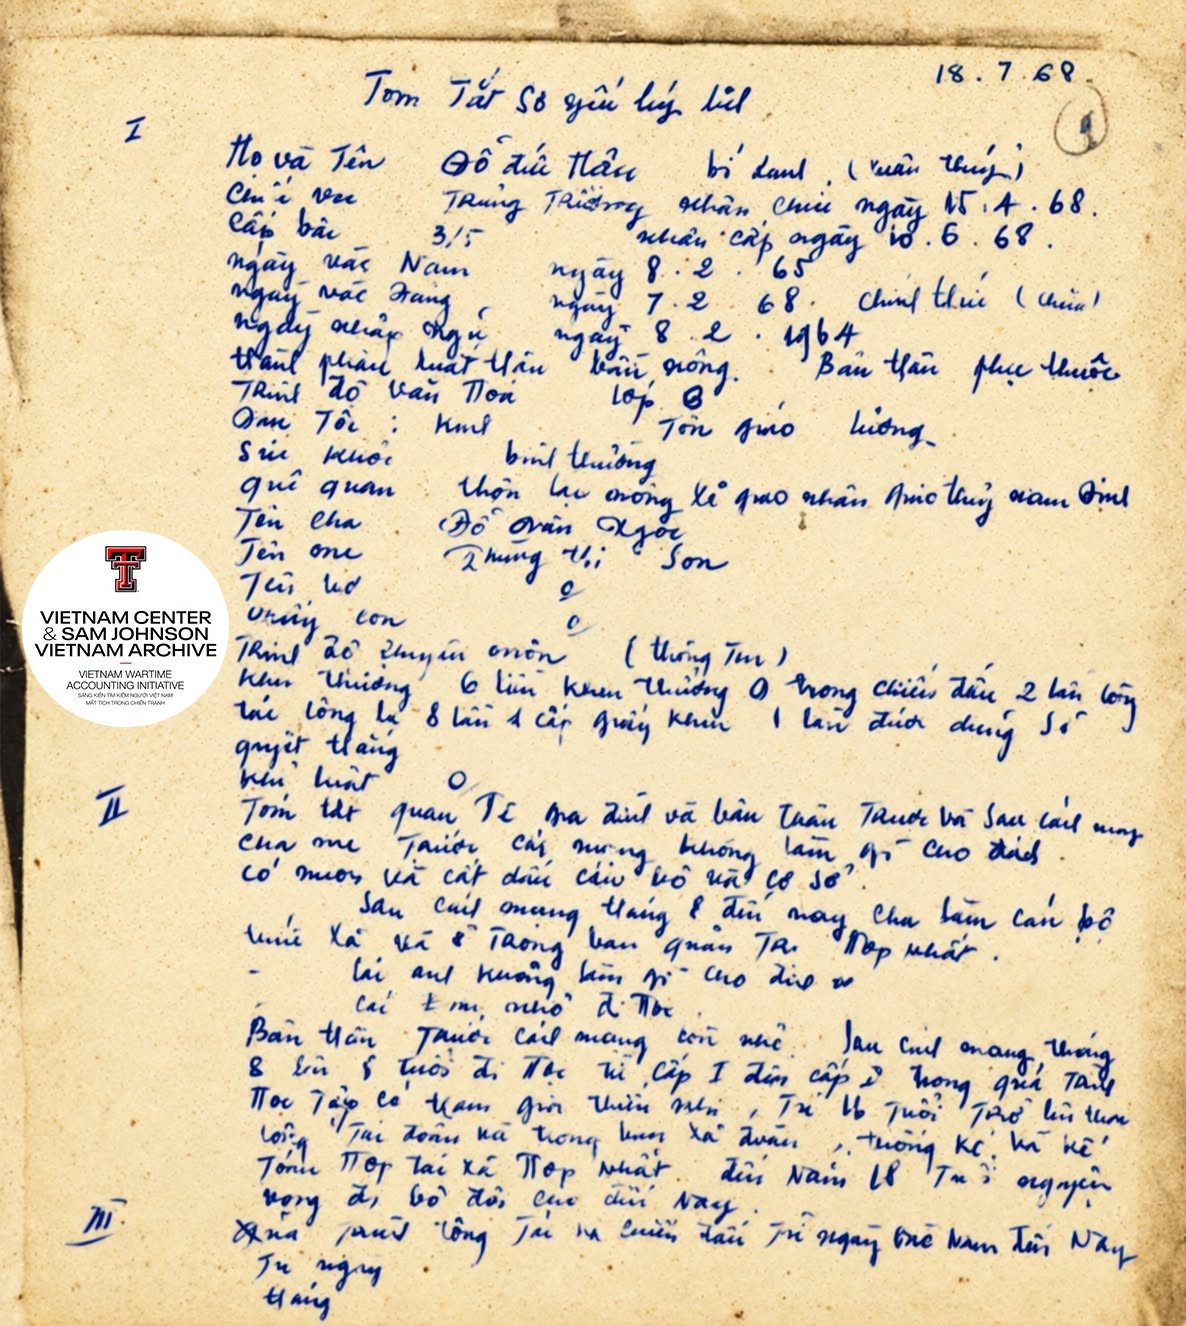 18.7.68
Tóm Tắt Sơ yếu lý lịch
1
I
Họ và Tên Đỗ đức Hậu bí danh (Xuân thuỷ)
Chức vụ Trung Trưởng nhận chức ngày 15.4.68.
Cấp bậc 3/5 nhận cấp ngày 10.6.68.
ngày vào Nam ngày 8.2.65
ngày vào Đảng, ngày 7.2.68. chính thức (chưa)
ngày nhập ngũ ngày 8.2.1964
thành phần xuất thân bần nông. Bản thân phụ thuộc
Trình độ văn Hoá lớp 6
Dân Tộc: Kinh Tôn giáo lương
Sức khoẻ bình thường
quê quán thôn lạc nông Xã giao nhân giao thuỷ nam định
Tên cha Đỗ văn Ngọc
Tên mẹ Phùng thị Son
Tên vợ 0
mấy con 0
Trình độ chuyên môn (thông Tin)
Khen thưởng 6 lần khen thưởng 0 trong chiến đấu 2 lần công
tác công là 8 lần cấp giấy khen 1 lần được
quyết thắng
kỷ luật 0
II
Tóm tắt quan hệ gia đình và bản thân Trước và Sau cách mạng
cha mẹ Trước cách mạng không làm gì cho địch
có nuôi và cất dấu cán bộ và cơ sở.
Sau cách mạng tháng 8 đến nay cha làm cán bộ
Xã và ở Trong ban quản Trị Hợp nhất.
- các anh không làm gì cho địch
- các em nhỏ đi Học
Bản thân Trước cách mạng còn nhỏ. Sau cách mạng tháng
8 lên 8 tuổi đi Học từ cấp I đến cấp 2 trong quá Trình
Học Tập có tham gia thiếu nhi, Từ 16 Tuổi Trở lên tham
công Tác đoàn và trong ban Xã đoàn, thống kê và kế
Toán Hợp Tác xã Hợp nhất đến Năm 18 nguyện
vọng đi bộ đội cho đến Nay.
III
Quá Trình Công Tác và chiến đấu Từ ngày vào Nam đến Nay
Từ ngày
tháng
VIETNAM CENTER
& SAM JOHNSON
VIETNAM ARCHIVE
VIETNAM WARTIME
ACCOUNTING INITIATIVE
SÁNG KIẾN TÌM KIẾM NGƯỜI VIỆT NAM
MẤT TÍCH TRONG CHIẾN TRANH